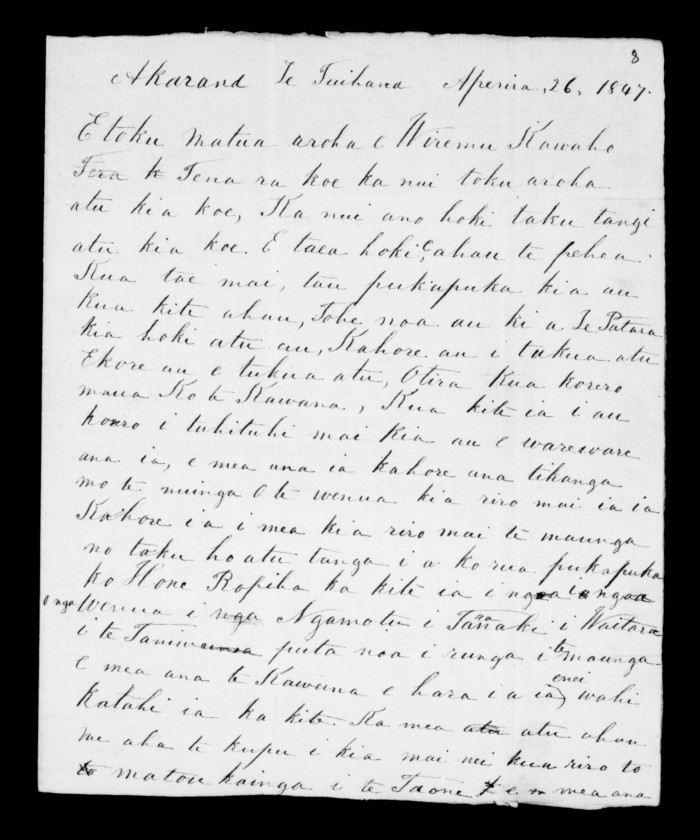 8
Akarand Te Tuihana Aperira, 26, 1847.
E toku matua aroha e Wiremu Kawaho
Tera te Tena ra koe ka nui toku aroha
atu kia koe, Ka nui ano hoki taku tangi
atu kia koe. E taea hoki e, ahau te pehea.
Kua tae mai, tau pukapuka kia au
kua kite ahau, Tohe noa au ki a Te Patara
kia hoki atu au, Kahore au i tukua atu
Ekore au e tukua atu, Otira Kua korero
maua Ko te Kawana, Kua kite ia i au
korro i tuhituhi mai kia au e wareware
ana ia, e mea ana ia kahore ana tikanga
mo te nuinga O te wenua kia riro mai ia ia
Kahore ia i mea kia riro mai te maunga
no taku hoatu tanga i a korua pukapuka
ko Hone Ropiha ka kite ia i ngaa i ngaa
O nga wenua i nga Ngamotu i Taranaki i Waitara
i te Taniwa puta noa i runga i te maunga
e mea ana te Kawana e hara i a ia enei wahi
Katahi ia ka kite Ka mea atu atu ahau
me aha te kupu i kia mai nei kua riro to
to matou kainga i te Taone e mea ana